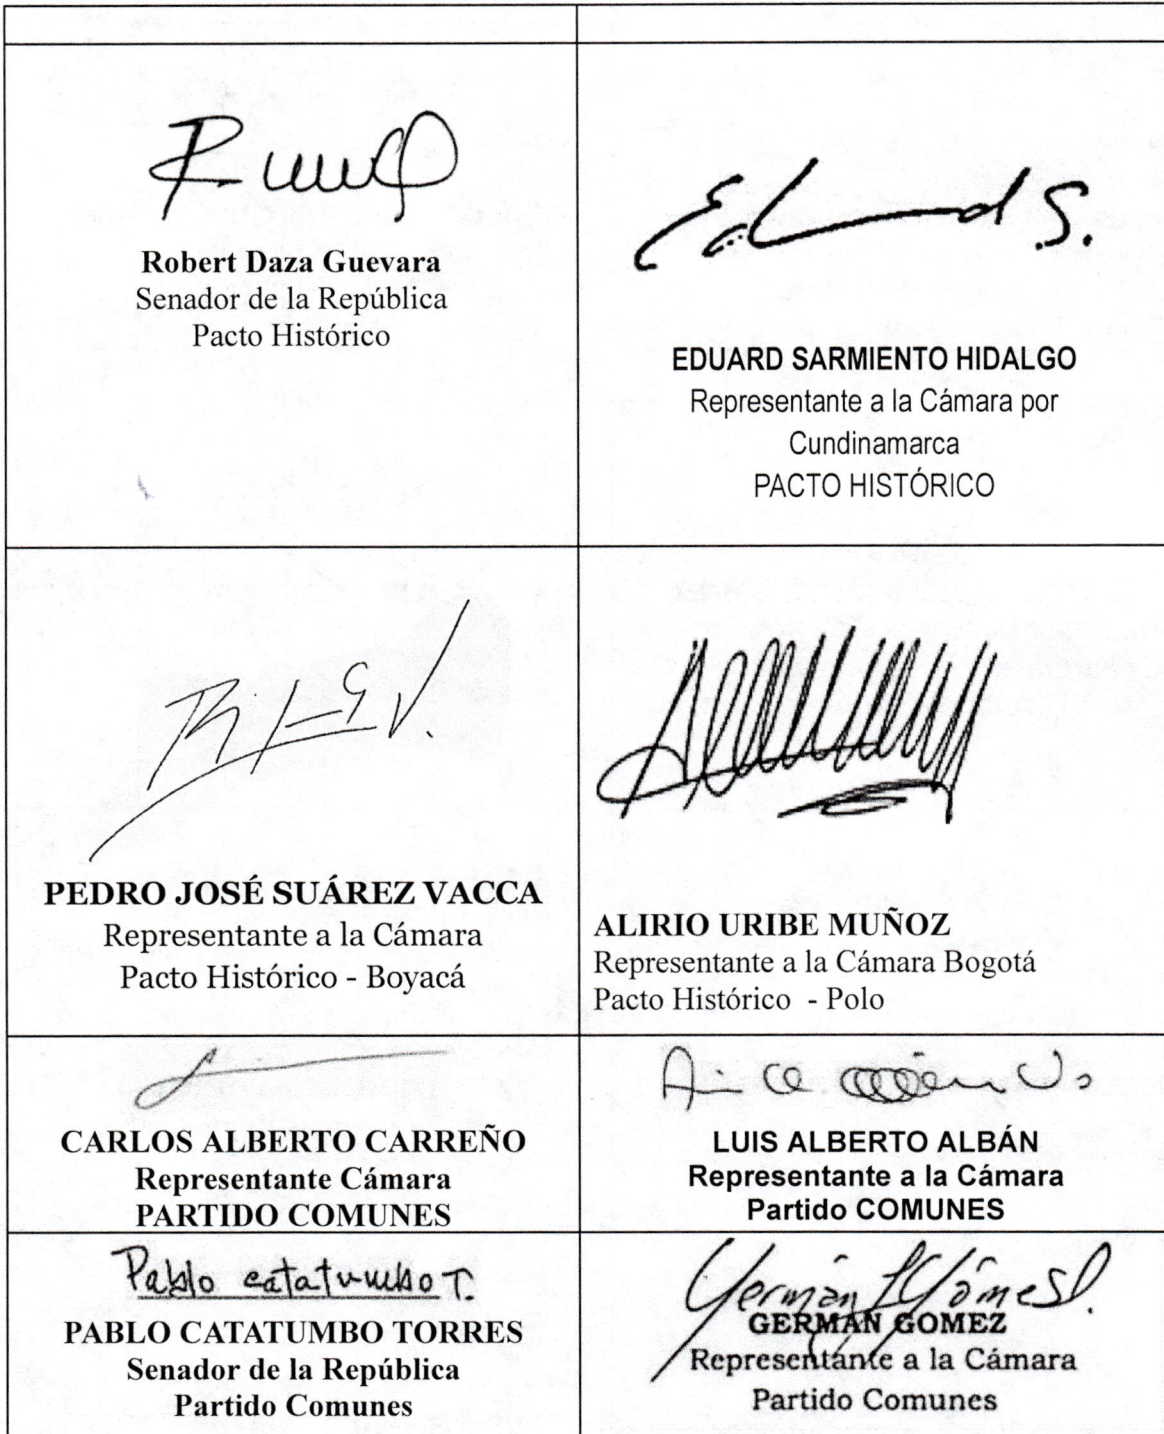 Robert Daza Guevara
Senador de la República
Pacto Histórico
Ed d S.
EDUARD SARMIENTO HIDALGO
Representante a la Cámara por
Cundinamarca
PACTO HISTÓRICO
PEDRO JOSÉ SUÁREZ VACCA
Representante a la Cámara
Pacto Histórico - Boyacá
ALIRIO URIBE MUÑOZ
Representante a la Cámara Bogotá
Pacto Histórico - Polo
CARLOS ALBERTO CARREÑO
Representante Cámara
PARTIDO COMUNES
LUIS ALBERTO ALBÁN
Representante a la Cámara
Partido COMUNES
Pablo catatumbo T.
PABLO CATATUMBO TORRES
Senador de la República
Partido Comunes
Germán Gómes
GERMÁN GOMEZ
Representante a la Cámara
Partido Comunes